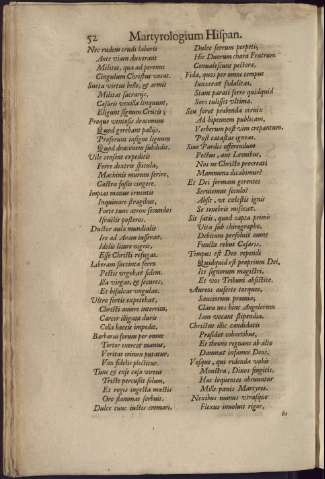 52 Martyrologium Hispan.
Nec rudem crudi laboris
Ante viam duxerant
Militat, qua ad perenne
Cingulum Christus vocat.
Sueta virtus bello, & armis
Militat sacrarijs.
Cæsaris vexilla linquunt,
Eligunt signum Crucis;
Proque ventosis draconum
Quod gerebant pallijs,
Præferunt insigne lignum
Quod draconem subdidit.
Vile censent expeditis
Ferre dextris spicula,
Machinis murum ferire,
Castra fossis cingere.
Impias manus cruentis
Inquinare stragibus,
Forte tunc atrox secundos
Israelis posteros.
Ductor aulæ mundialis
Ire ad Aram iusserat,
Idolis litare nigris,
Esse Christi refugas.
Liberam succincta ferro
Pestis vrgebat fidem.
Illa virgas, & secures,
Et bisulcas vngulas.
Vltro fortis expetebat,
Christi amore interrita,
Carcer illigata duris
Colla baccis impedit.
Barbaras forum per omne
Tortor exercet manus,
Veritas crimen putatur,
Vox fidelis plectitur.
Tunc & ense cæsa virtus
Triste percussit solum,
Et rogis ingesta mæstis
Ore flammas sorbuit.
Dulce tunc iustis cremari,
Dulce ferrum perpeti,
Hic Duorum chara Fratrum
Concalescunt pectora,
Fida, quos per omne tempus
Iunxerat sodalitas,
Stant parati ferre quidquid
Sors tulisset vltima.
Seu foret præbenda ceruix
Ad bipennem publicam,
Verberum post vim crepantum,
Post catastas igneas.
Siue Pardis offerendum
Pectus, aut Leonibus,
Nos ne Christo procreati
Mammonæ dicabimur?
Et Dei formam gerentes
Seruiemus sæculo?
Absit, vt cælestis ignis
Se tenebris misceat.
Sit satis, quod capta primis
Vita sub chirographo,
Debitum persoluit omne
Functa rebus Cæsaris.
Tempus est Deo rependi
Quidquid est proprium Dei,
Ite signorum magistri,
Et vos Tribuni absistite.
Aureos auferte torques,
Sauciorum præmia,
Clara nos hinc Angelorum
Iam vocant stipendia.
Christus illic candidatis
Præsidet cohortibus,
Et throno regnans ab alto
Damnat infames Deos,
Vosque, qui ridenda vobis
Monstra, Diuos fingitis.
Hæc loquentes obruuntur
Mille pœnis Martyres.
Nexibus manus vtrasque
Flexus inuoluit rigor,